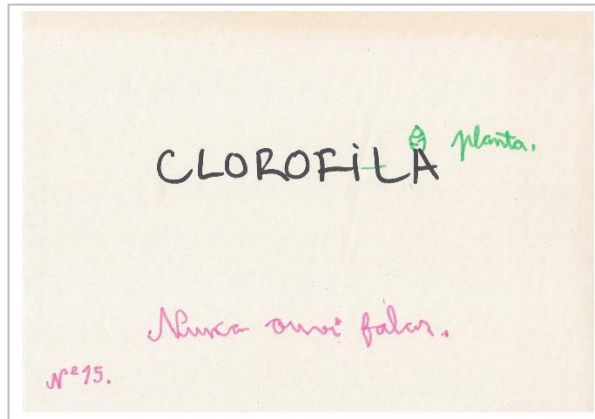 CLOROFiLA planta.
Nunca ouvi falar.
Nº 15.